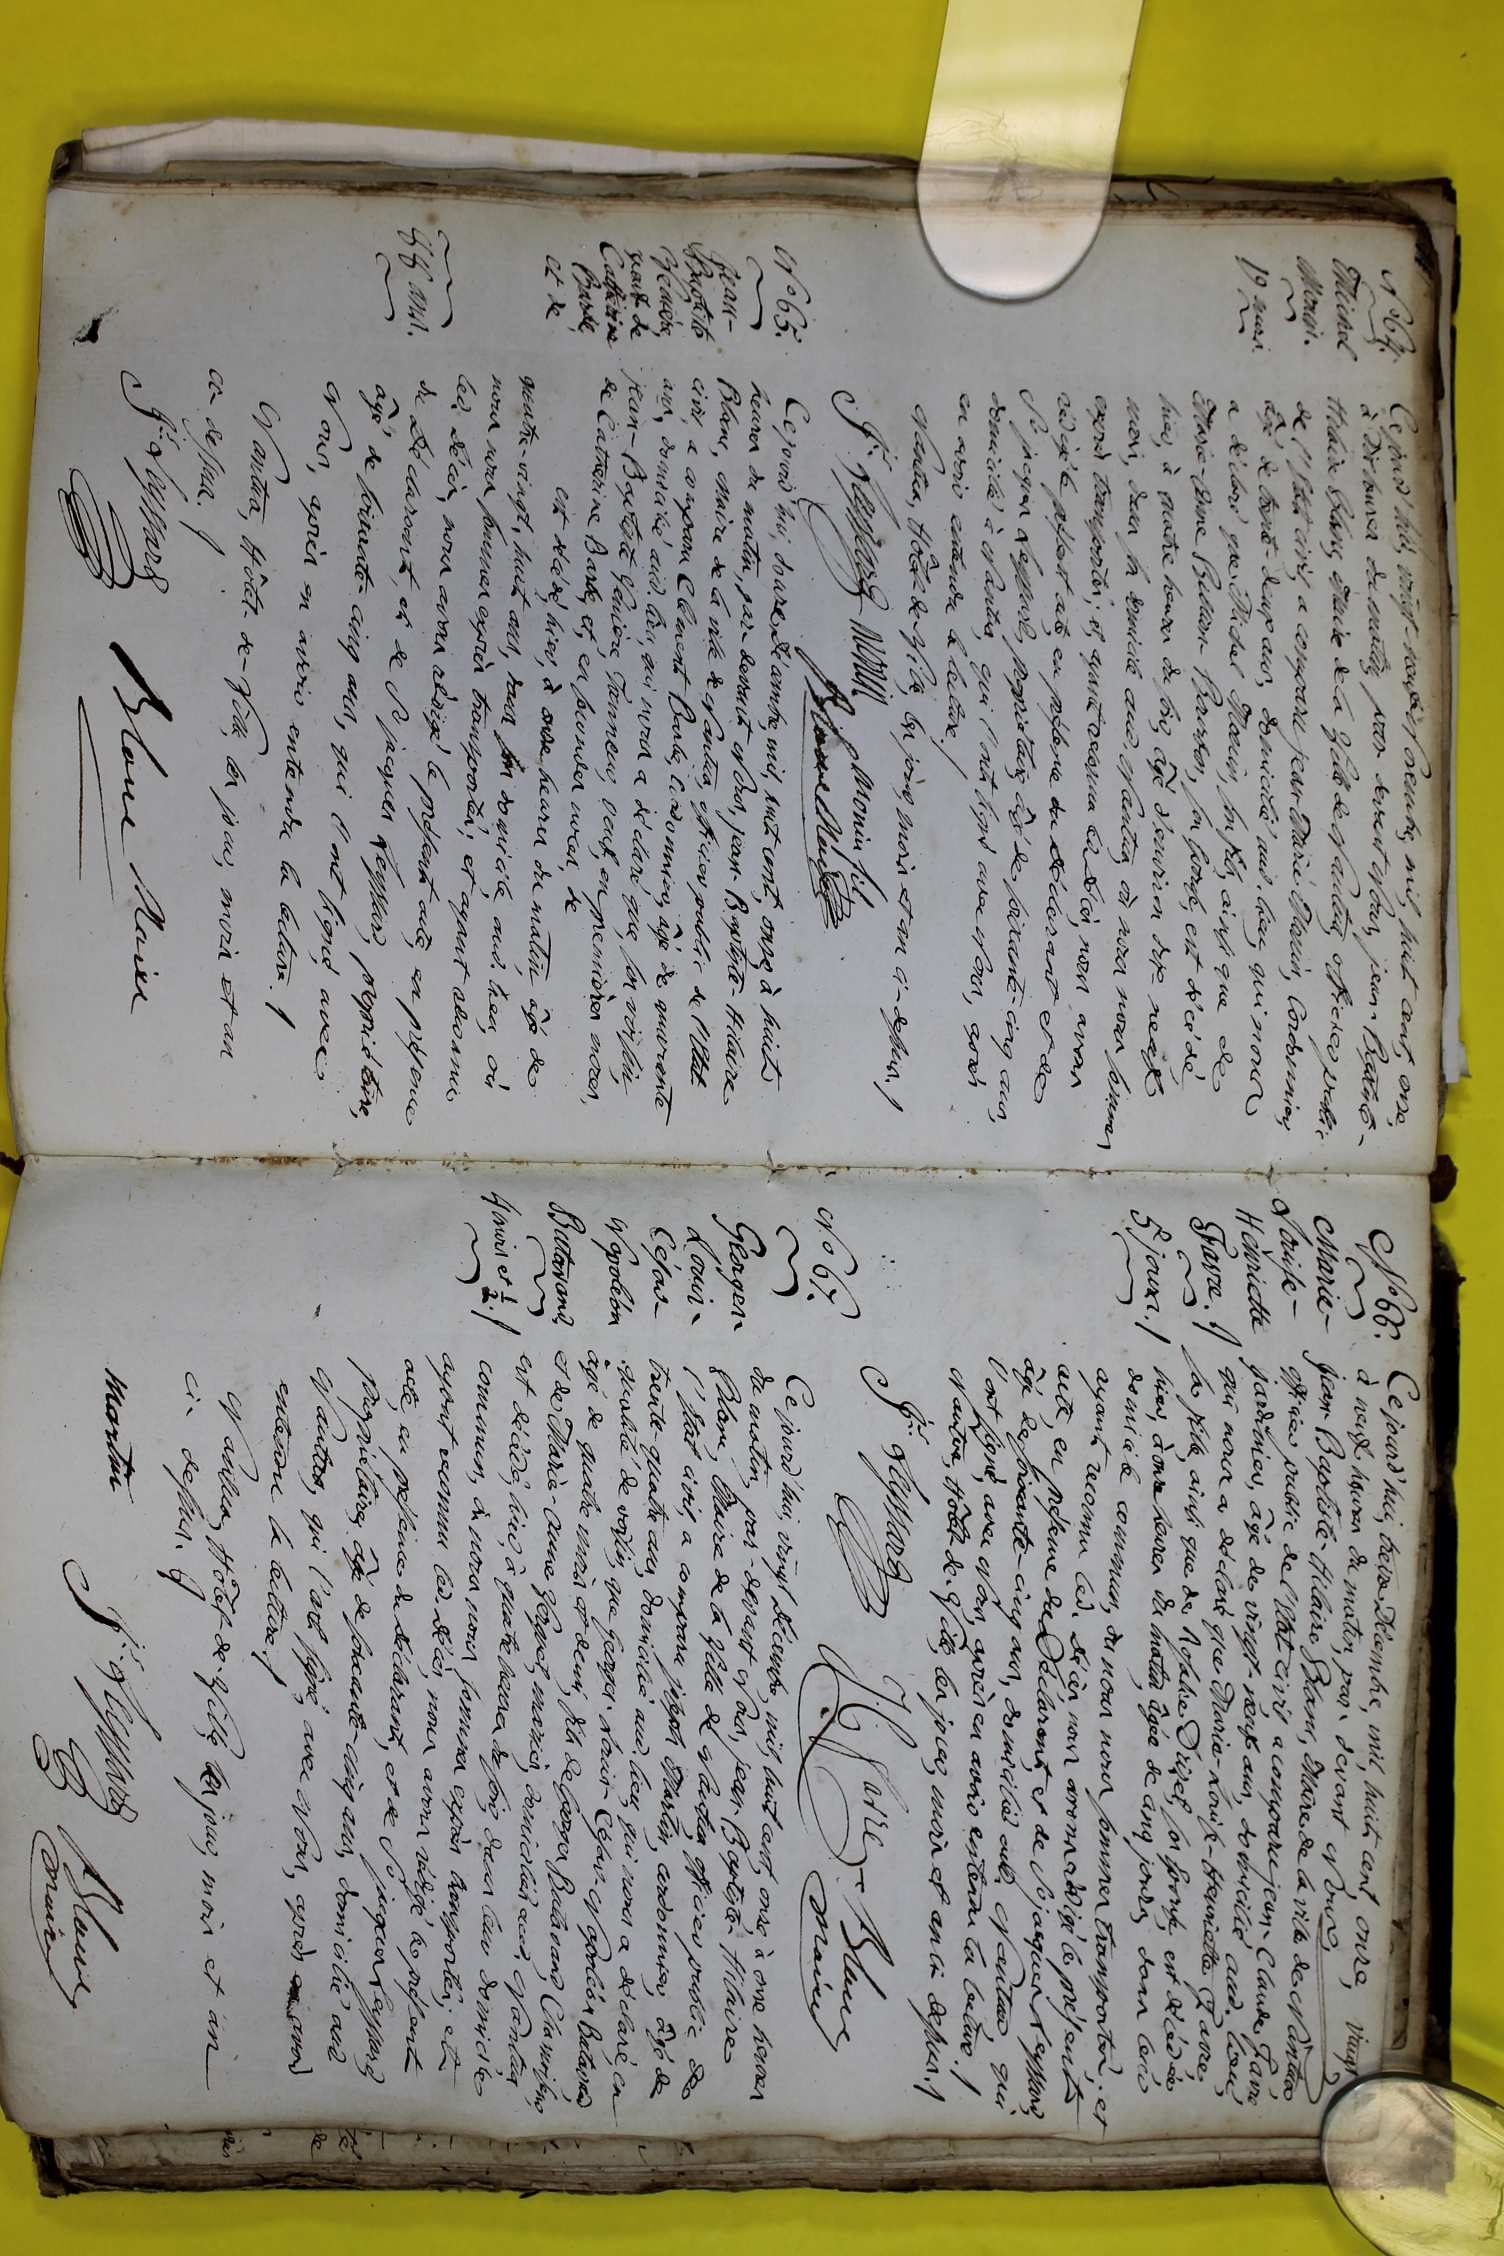 No 64.
Michel
Monin.
19 mois.
Ce jourd'hui, vingt-neuf novembre, mil, huit cent, onze,
à Dix heures du matin, par devant Nous, jean-Baptiste-
Hilaire Blanc, Maire de la Ville de Nantua, officier public
de l'état civil, a comparu jean-Marie Monin, Cordonnier,
âgé de trente-deux ans, domicilié aud. lieu, qui nous
a déclaré que Michel Monin, son fils, ainsi que de
Marie-Anne son épouse, est décédé
hier, à quatre heures du soir, âgé d'environ dix neuf
mois, dans son domicile aud. Nantua, où nous nous sommes
exprès transportés; et, ayant reconnu led. décès, nous avons
rédigé le présent acte, en présence du déclarant et de
Sr jacques propriétaire, âgé de soixante-cinq ans,
domicilié à Nantua, qui l'ont signé avec Nous, après
en avoir entendu la lecture./
Nantua, Hôtel de Ville, les jour, mois et an ci-dessus./
Monin fils
Blanc Maire
No 65.
jean-
Baptiste
veuf de
Catherine
Barde,
et de
88 ans.
Ce jourd'hui, douze Décembre, mil, huit cent, onze, à huit
heures du matin, par devant Nous, jean-Baptiste-Hilaire
Blanc, Maire de la ville de Nantua, officier public de l'état
civil, a comparu Clément Cordonnier, âgé de quarante
ans, domicilié aud. lieu, qui nous a déclaré que son voisin,
jean-Baptiste Tanneur, veuf, en premières noces,
de Catherine Barde, et, en secondes noces, de
est décédé, hier, à onze heures du matin âgé de
quatre-vingt, huit ans, dans son domicile aud. lieu, où
nous nous sommes exprès transportés; et ayant reconnu
led. décès, nous avons rédigé le présent acte, en présence
du Déclarant, et de Sr jacques propriétaire,
âgé de soixante cinq ans, qui l'ont signé avec
Nous, après en avoir entendu la lecture./
Nantua, Hôtel-de-Ville, les jour, mois et an
ci dessus./
Blanc Maire
No 66.
Marie-
Louise-
Henriette
Favre./
5 jours./
Ce jourd'hui, treize Décembre, mil, huit cent onze,
à neuf heures du matin, par-devant Nous,
jean-Baptiste-Hilaire Blanc, Maire de la ville de Nantua
officier public de l'état civil, a comparu jean-Claude Favre
jardinier, âgé de vingt-neuf ans, domicilié aud. lieu,
qui nous a déclaré que Marie-Louise-Henriette Favre,
sa fille, ainsi que de son épouse, est décédée
hier, à onze heures du matin âgée de cinq jours, dans leur
domicile commun, où nous nous sommes transportés; et
ayant reconnu led. décès, nous avons rédigé le présent
acte, en présence du Déclarant, et de Sr jacques
âgé de soixante-cinq ans, domicilié aud. Nantua qui
l'ont signé, avec Nous, après en avoir entendu la lecture./
Nantua, Hôtel-de-Ville, les jour, mois et an ci dessus./
favre
Blanc
maire
No 67.
Georges-
Louis-
César-
Napoléon
4 mois et ½./
Ce jourd'hui, vingt décembre, mil, huit cent, onze à onze heures
du matin, par-devant Nous, jean-Baptiste-Hilaire
Blanc, Maire de la Ville de Nantua, officier public de
l'état civil, a comparu joseph Martin, cordonnier, âgé de
trente-quatre ans, domicilié aud. lieu, qui nous a déclaré, en
qualité de voisin, que Georges-Louis-César-Napoléon
âgé de quatre mois et demi, fils de Georges
et de Marie-Anne mariés, domiciliés aud. Nantua,
est décédé, hier, à quatre heures du soir, dans leur domicile
commun, où nous nous sommes exprès transportés; et
ayant reconnu led. décès, nous avons rédigé le présent
acte, en présence du déclarant, et de Sr jacques
propriétaire, âgé de soixante-cinq ans, domicilié aud
Nantua, qui l'ont signé, avec Nous, après en avoir
entendu la lecture./
Nantua, Hôtel-de-Ville, les jour, mois et an
ci dessus./
Martin
Blanc
maire